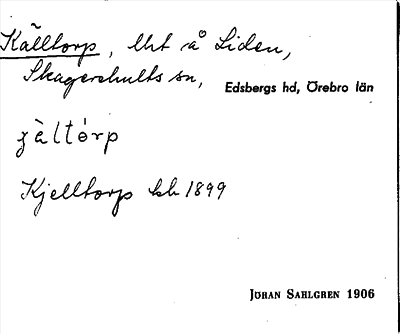 Källtorp, lht å Liden,
Skagershults sn,
Edsbergs hd, Örebro län
Kjelltorp kb 1899
Jöran Sahlgren 1906